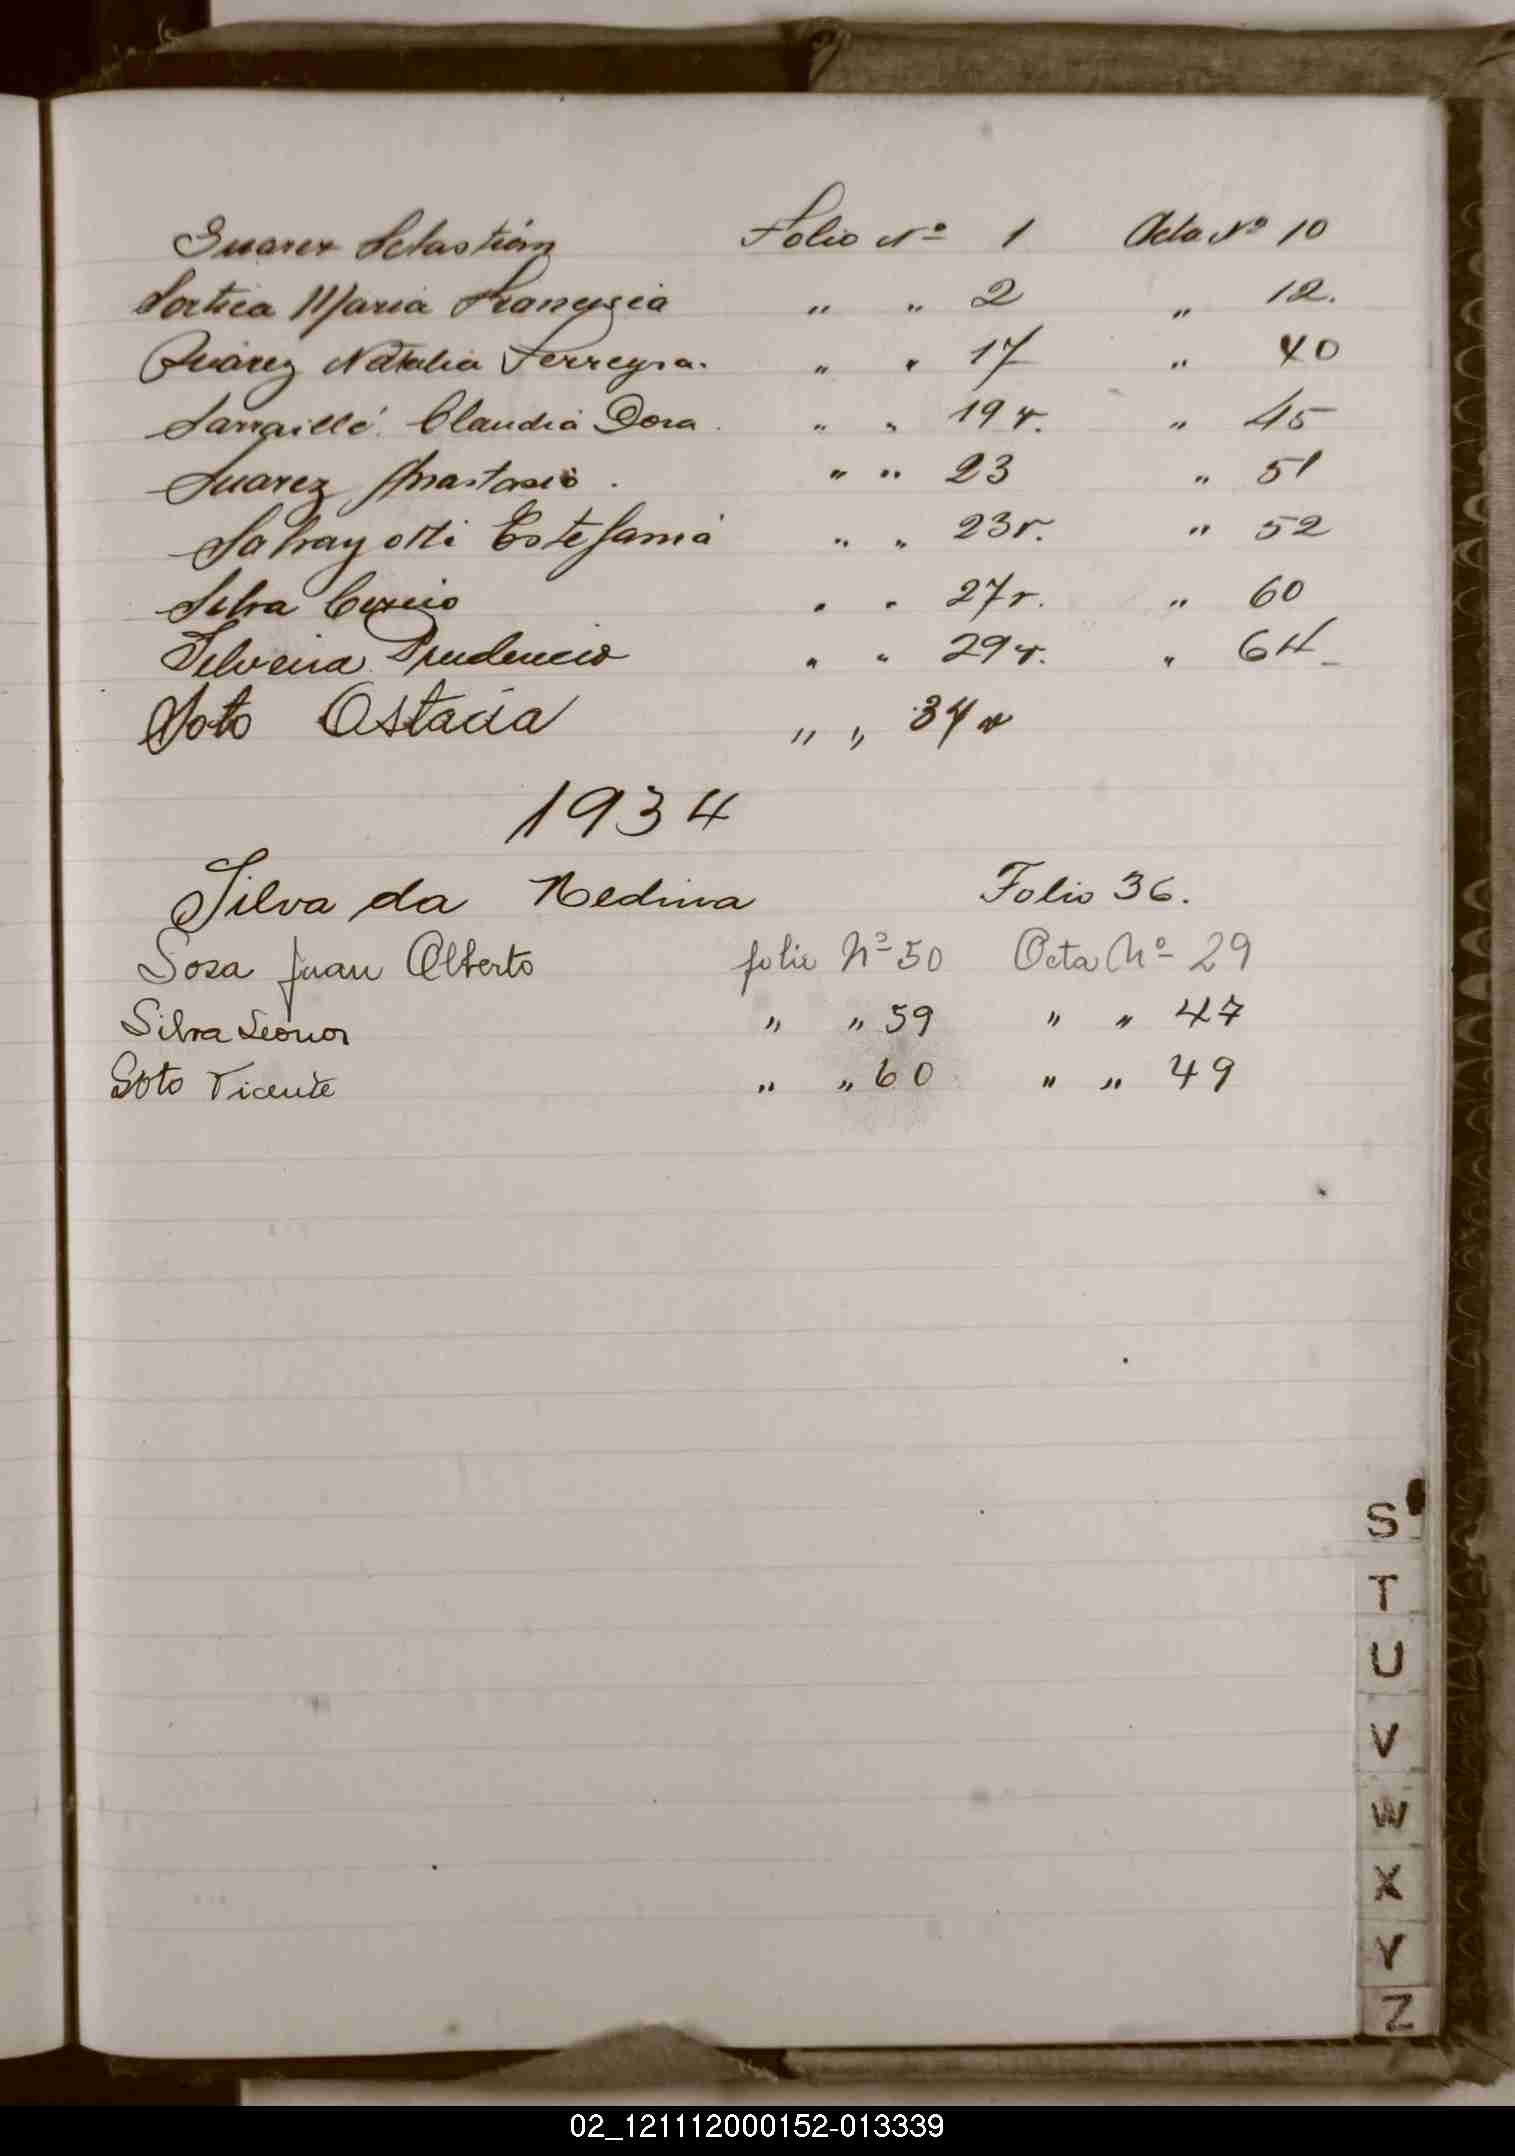 Suarez Sebastián Folio Nº 1 Acta Nº 10
Sortica Maria Francisca " " 2 " 12.
Suárez Natalia Ferreyra. " " 17 " 40
Sarraillé Claudia Dora. " " 19 v. " 45
Suarez Anastasio. " " 23 " 51
Estefania " " 23 v. " 52
Silva " " 27 v. " 60
Silveira Prudencio " " 29 v. " 64
Soto Ostacia " " 34 v
1934
Silva da Medina Folio 36.
Sosa Juan Alberto folio Nº 50 Acta Nº 29
Silva Leonor " " 59 " " 47
Soto Vicente " " 60 " " 49
S
T
U
V
W
X
Y
Z
02_121112000152-013339